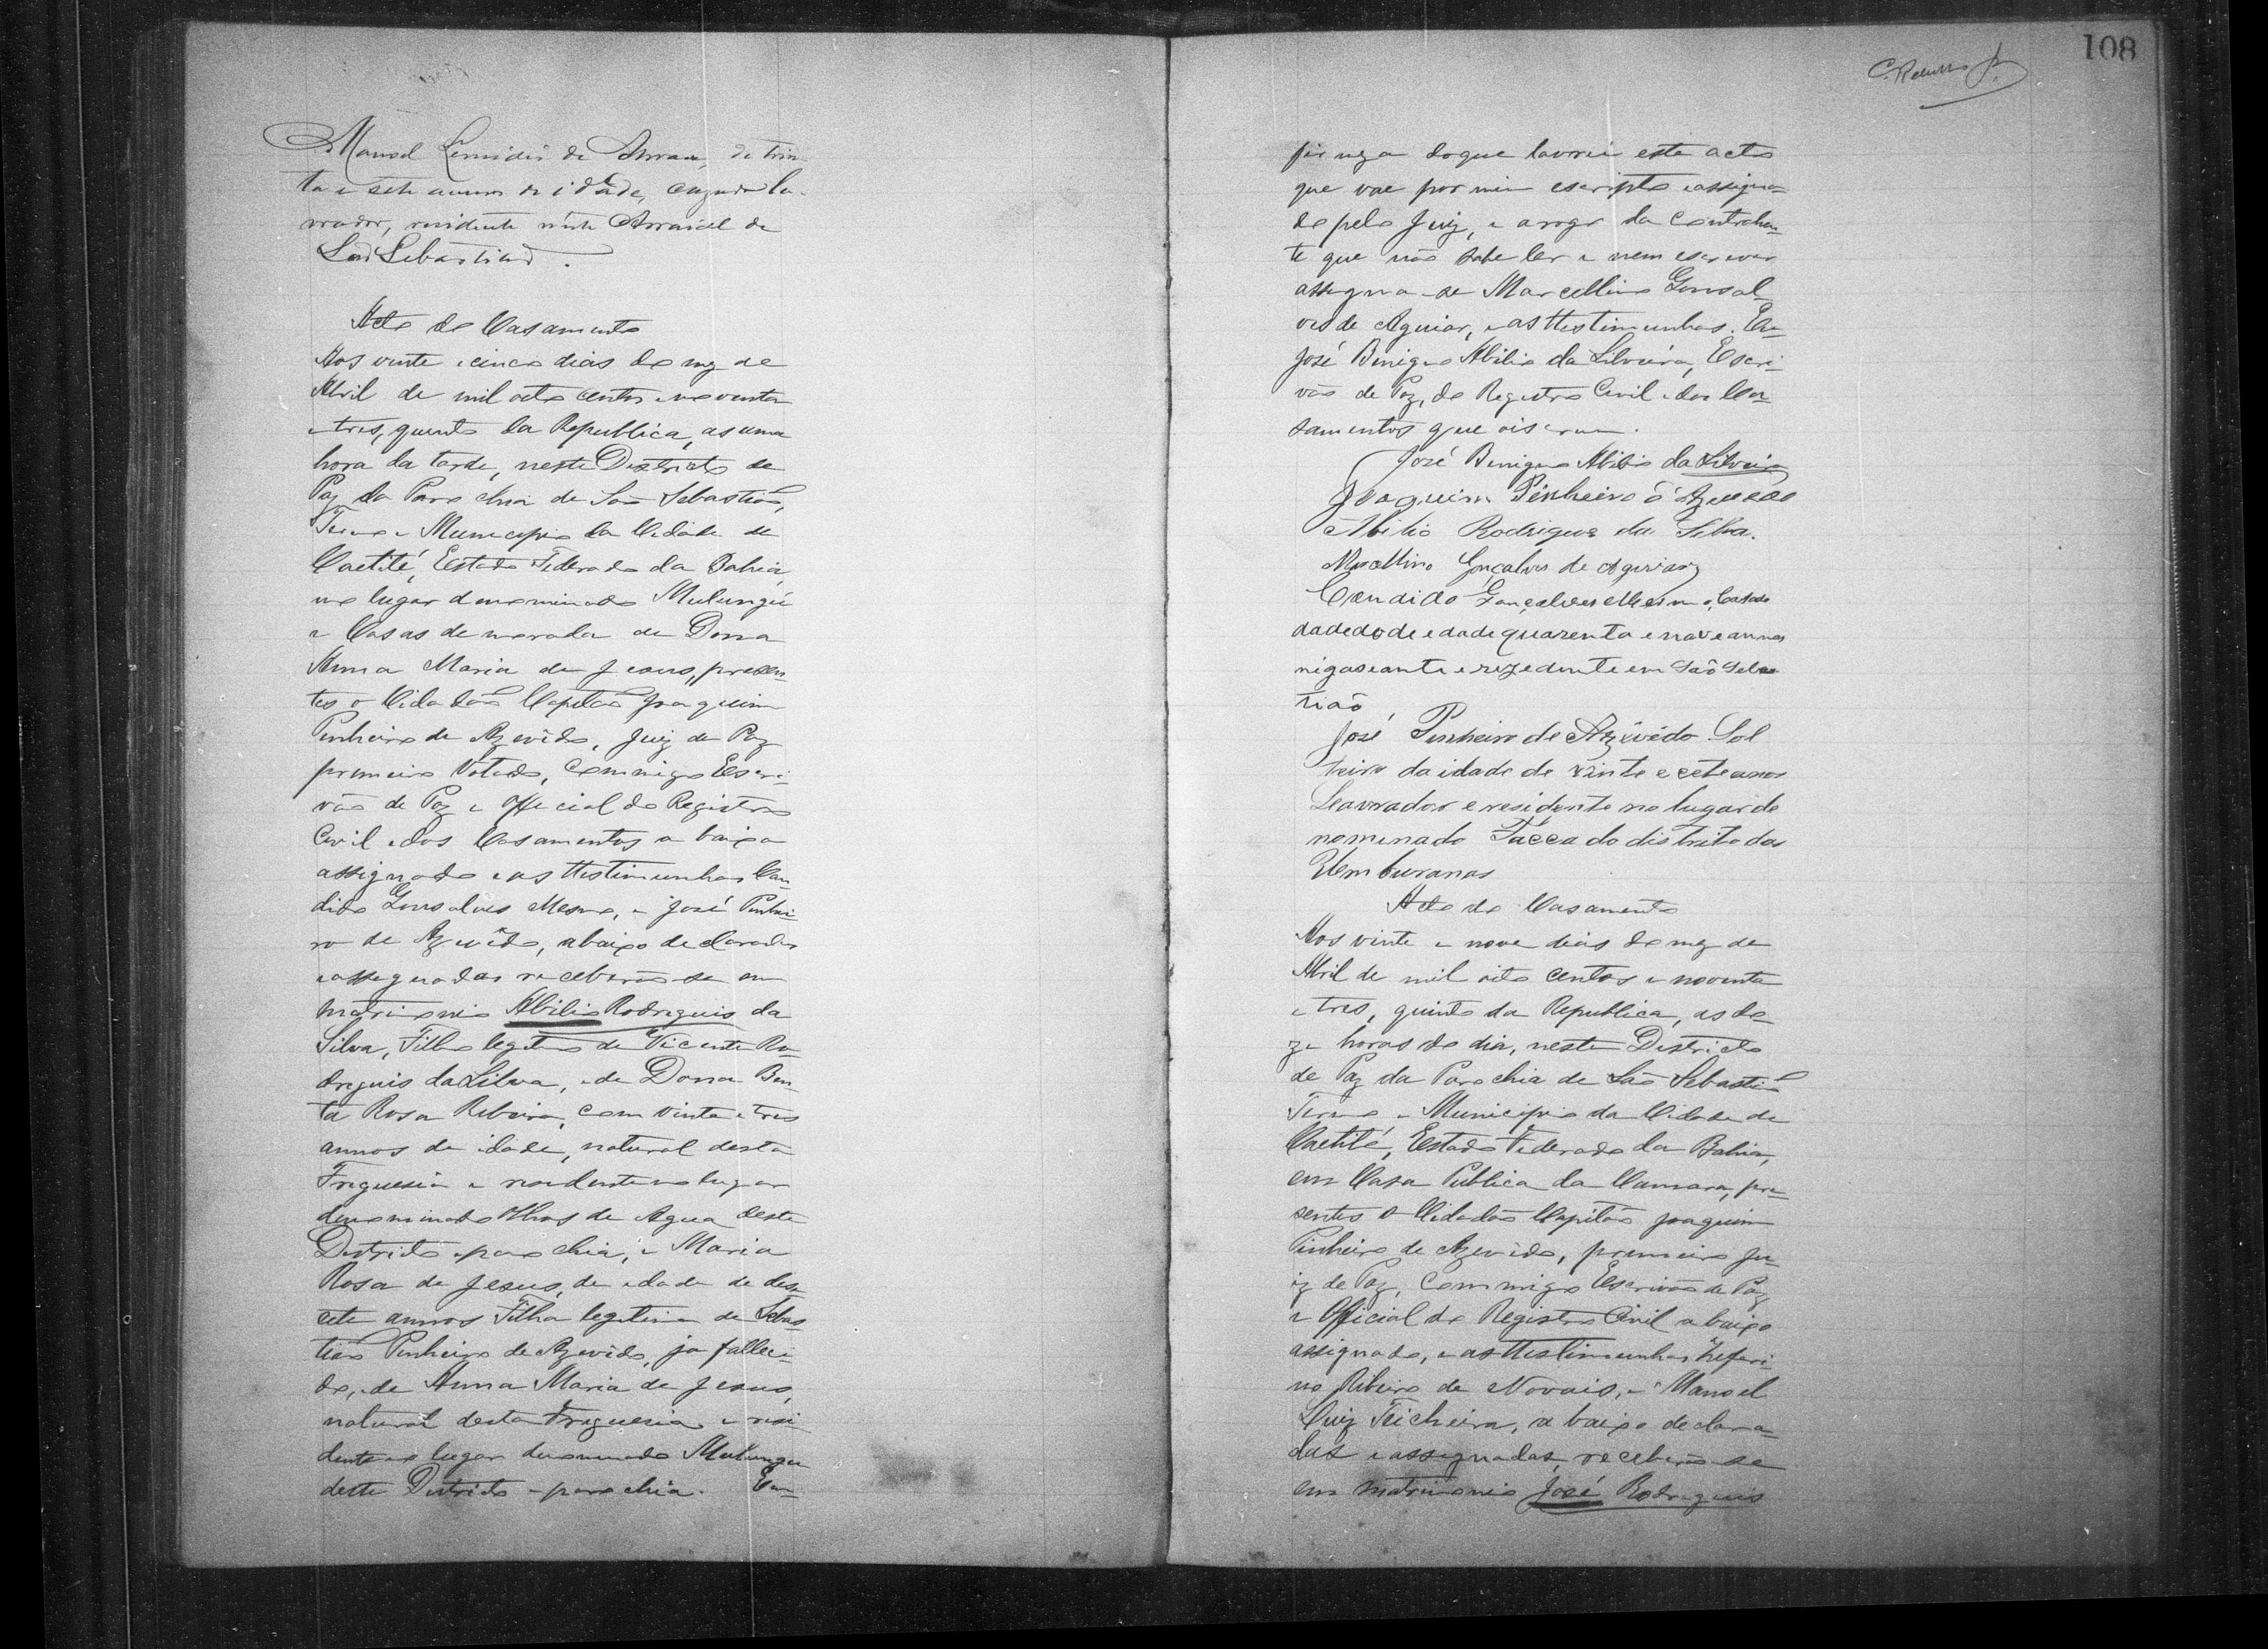 Manoel Leonidio de Abrau, de trin-
ta e sete annos de idade, cazado la-
vrador, residente nesta Arraial de
São Sebastião.
Acto de Casamento
Aos vinte e cinco dias do mez de
Abril de mil oito centos e noventa
e tres, quinto da Republica, as uma
hora da tarde, neste Destricto de
Paz da Parochia de São Sebastião,
Termo e Municipio da Cidade de
Caetité, Estado Federado da Bahia,
no lugar denominado Mulungú
e Casas de morada de Dona
Anna Maria de Jesus, presen-
tes o Cidadão Capitão Joaquim
Pinheiro de Azevêdo, Juiz de Paz
primeiro Votado, Commigo Escri-
vão de Paz e Official do Registro
Civil e dos Casamentos a baixo
assignado e as testimunhas Can-
dido Gonsalves Mesmo, e José Pinhei-
ro de Azevêdo, abaixo declarados
e assegnadas receberão-se em
matrimonio Abilio Rodrigues da
Silva, Filho legitimo de Vicente Ro-
dreguis da Silva, e de Dona Ben-
ta Rosa Ribeiro, com vinte e tres
annos de idade, natural desta
Freguesia e residente no lugar
denominado Olhos de Agua deste
Destricto e parochia, e Maria
Rosa de Jesus, de idade de des-
cete annos Filha legitima de Sebas-
tião Pinheiro de Azevêdo, ja falleci-
do, e de Anna Maria de Jesus,
natural desta Freguesia e resi-
dente no lugar denominado Mulungu
deste Destricto e parochia. Em
108
firmeza do que lavrei este acto
que vae por mim escripto e assigna-
do pelo Juiz, e a rogo da Contrahen-
te que não sabe ler e nem escrever
assegna-se Marcellino Gonsal-
ves de Aguiar, e as testimunhas. Eu
José Benigno Abilio da Silveira, Escri-
vão de Paz, do Registro Civil e dos Ca-
samentos que o iscrevi.
José Benigno Abilio da Silveira
Joaquim Pinheiro d'Azevedo
Abilio Rodrigues da Silva.
Marcellino Gonçalves de Aguiar
Candido Gonçalves Mesmo, Casado
da de edade quarenta e nove annos
nigoseante e rezedente em São Sebas
tiaõ
José Pinheiro de Azevêdo Sol
teiro da idade de vinte e cete anos
Leavrador e residente no lugar de
nominado Facca do distrito das
Umburanas
Acto de Casamento
Aos vinte e nove dias do mez de
Abril de mil oito centos e noventa
e tres, quinto da Republica, as do-
ze horas do dia, neste Destricto
de Paz da Parochia de São Sebastião
Termo e Municipio da Cidade de
Caetité, Estado Federado da Bahia,
em Casa Publica da Camara, pre-
sentes o Cidadão Capitão Joaquim
Pinheiro de Azevêdo, primeiro Ju-
iz de Paz, Commigo Escrivão de Paz
e Official do Registro Civil a baixo
assignado, e as testimunhas Zeferi-
no Ribeiro de Novais, e Manoel
Luiz Teicheira, a baixo declara-
das e assegnadas, receberão-se
em matrimonio José Rodreguis